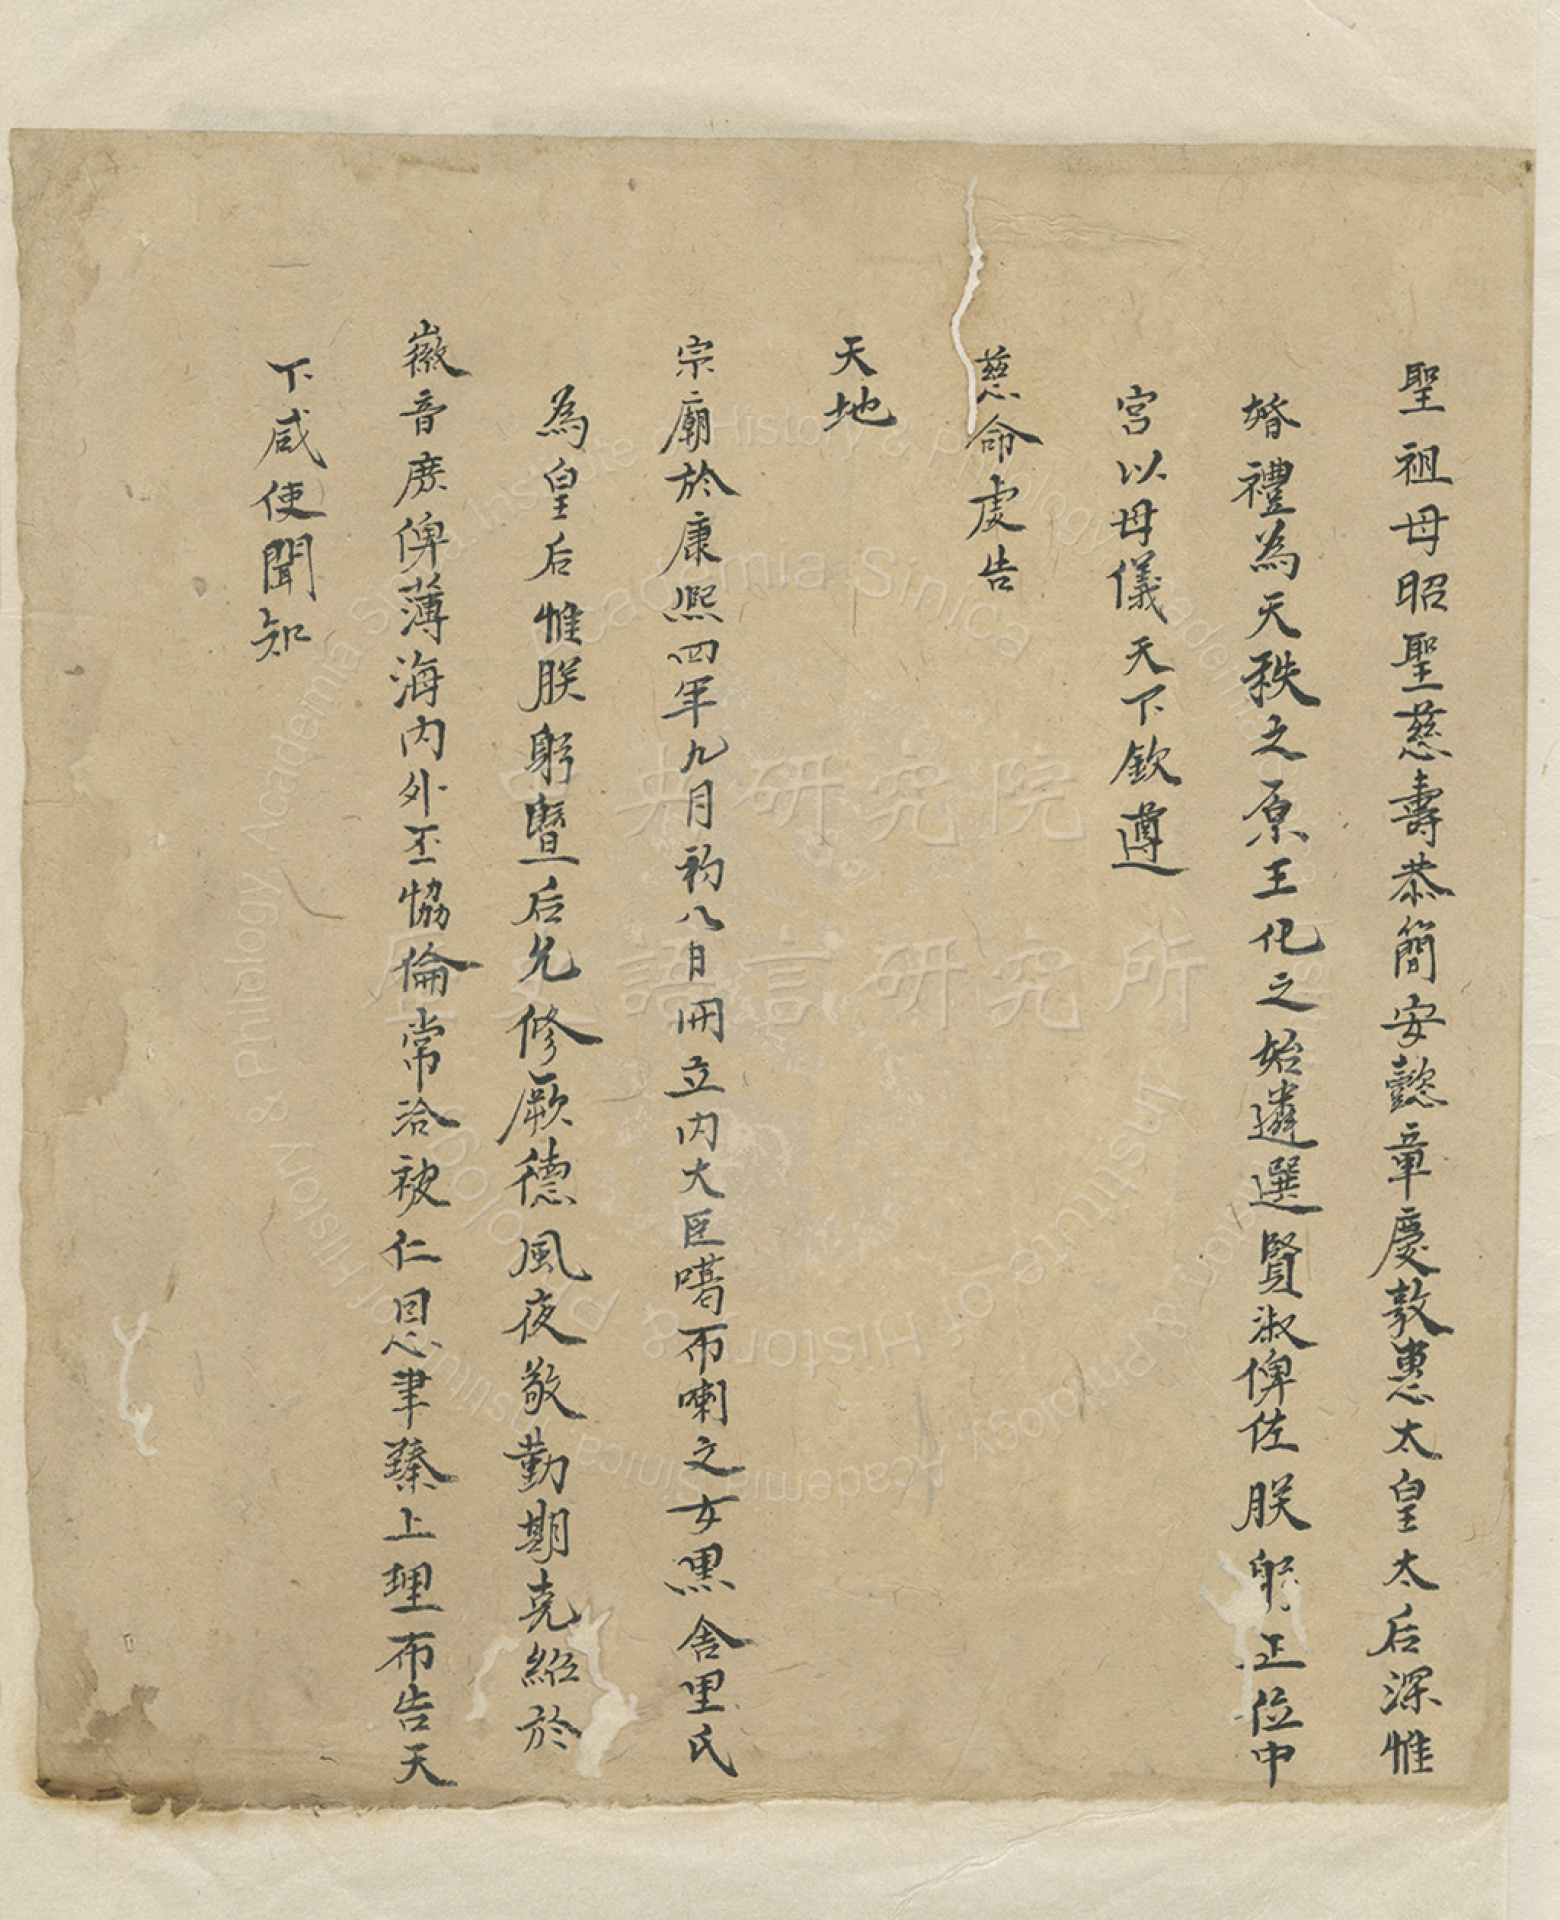 聖祖母昭聖慈壽恭簡安懿章慶敦惠太皇太后深惟
婚禮為天秩之原王化之始遴選賢淑俾佐朕躬正位中
宮以母儀天下欽遵
慈命虔告
天地
宗廟於康熙四年九月初八日冊立內大臣噶布喇之女黑舍里氏
為皇后惟朕躬暨后允修厥德風夜敬勤期克紹於
徽音庶俾薄海內外丕恊倫常洽被仁恩聿臻上理布告天
下咸使聞知
史典研究院
歷史語言研究所
Institute of History & Philology, Academia Sinica